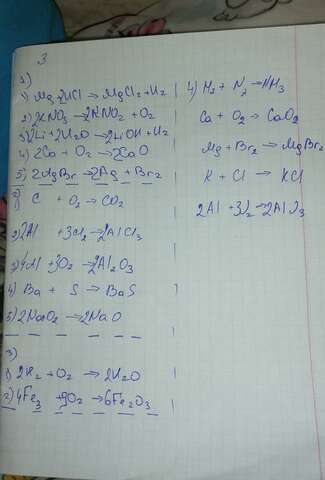 3
1)
1) Mg + 2HCl → MgCl2 + H2
2) 2KNO3 → 2KNO2 + O2
3) 2Li + 2H2O → 2LiOH + H2
4) 2Ca + O2 → 2CaO
5) 2MgBr → 2Ag + Br2
2)
1) C + O2 → CO2
2) 2Al + 3Cl2 → 2AlCl3
3) 4Al + 3O2 → 2Al2O3
4) Ba + S → BaS
5) 2NaO2 → 2NaO
3)
1) 2H2 + O2 → 2H2O
2) 4Fe3 + 9O2 → 6Fe2O3
4) H2 + N2 → NH3
Ca + O2 → CaO2
Mg + Br2 → MgBr2
K + Cl → KCl
2Al + 3J2 → 2AlJ3